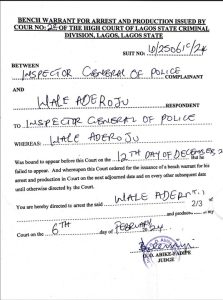 BENCH WARRANT FOR ARREST AND PRODUCTION ISSUED BY
COURT NO: 24 OF THE HIGH COURT OF LAGOS STATE CRIMINAL
DIVISION, LAGOS, LAGOS STATE
SUIT NO:
BETWEEN
INSPECTOR GENERAL OF POLICE
COMPLAINANT
AND
WALE ADEROJU
RESPONDENT
TO INSPECTOR GENERAL OF POLICE
WHEREAS: WALE ADEROJU
Was bound to appear before this Court on the 12TH DAY OF DECEMBER, 2 But he
failed to appear. And whereupon this Court ordered for the issuance of a bench warrant for his
arrest and production in Court on the next adjourned date and on every other subsequent date
until otherwise directed by the Court.
You are hereby directed to arrest the said WALE
2/3 of
and produce
Court on the 6TH day of FEBRUARY
O.O. ABIKE-FADIPE
JUDGE